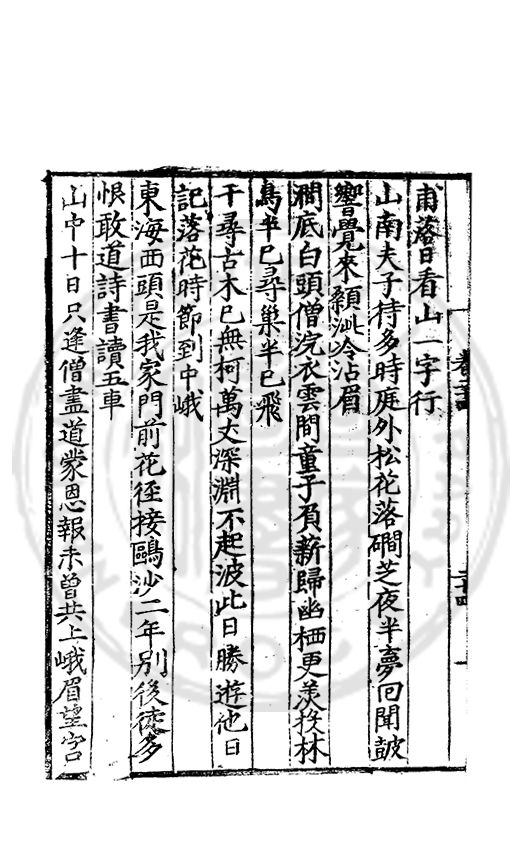 甫落日看山一字行
山南夫子待多時庭外松花落磵芝夜半夢回聞鼓
響覺來顙泚冷沾眉
澗底白頭僧浣衣雲間童子負薪歸幽栖更羨投林
鳥半已尋巢半已飛
千尋古木已無柯萬丈深淵不起波此日勝遊他日
記落花時節到中峨
東海西頭是我家門前花徑接鷗沙二年別後德多
恨敢道詩書讀五車
山中十日只逢僧盡道蒙恩報未曾共上峨眉望宮
卷二十四
二十四